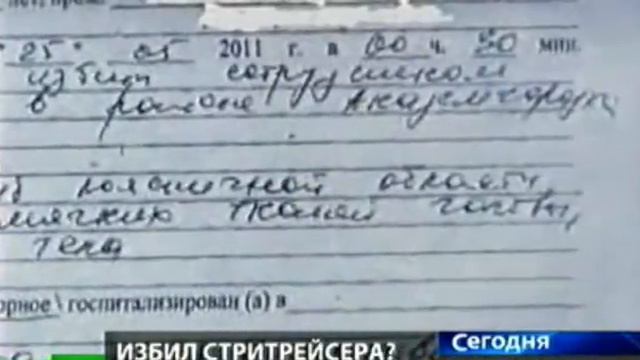 "25" 05 2011 г. в 00 ч. 30 мин.
избит сотрудником
в районе Академгородка
поясничной области,
мягких тканей головы,
тела
орное \ госпитализирован (а) в
ИЗБИЛ СТРИТРЕЙСЕРА?
Сегодня